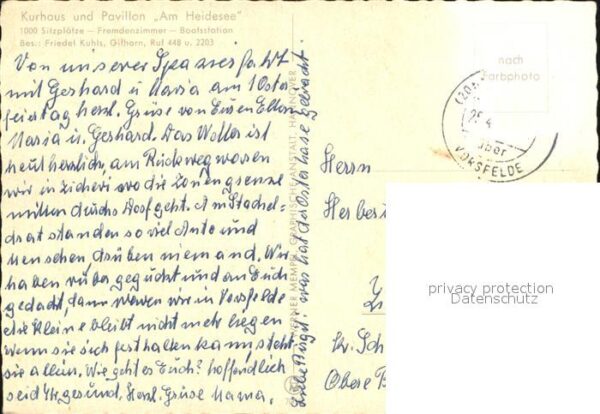 Kurhaus und Pavillon „Am Heidesee"
1000 Sitzplätze — Fremdenzimmer — Bootsstation
Bes.: Friedel Kuhls, Gifhorn, Ruf 448 u. 2203
Von unserer Spazierfahrt
mit Gerhard u Maria am 1 Oster
feiertag herzl. Grüse von Euren Eltern
Maria u. Gerhard. Das Wetter ist
heut herrlich, am Rückweg waren
wir in Zicherie, wo die Zonengrenze
mitten durchs Dorf geht. Am Stachel-
drat standen so viel Auto und
Menschen, drüben niemand. Wir
haben rüber geguckt und an Euch
gedacht, dann waren wir in Vorsfelde
die Kleine bleibt nicht mehr liegen
wenn sie sich festhalten kann, steht
sie allein. Wie geht es Euch? hoffentlich
seid Ihr gesund. Herzl. Grüse Mama.
Liebe Birgit! was hat der Osterhase gebracht
WERNER MEMPEL GRAPHISCHE ANSTALT, HANNOVER
nach
Farbphoto
(20a
25.4
über
VORSFELDE
Herrn
Herber
Kr. Sch
Obere B
privacy protection
Datenschutz